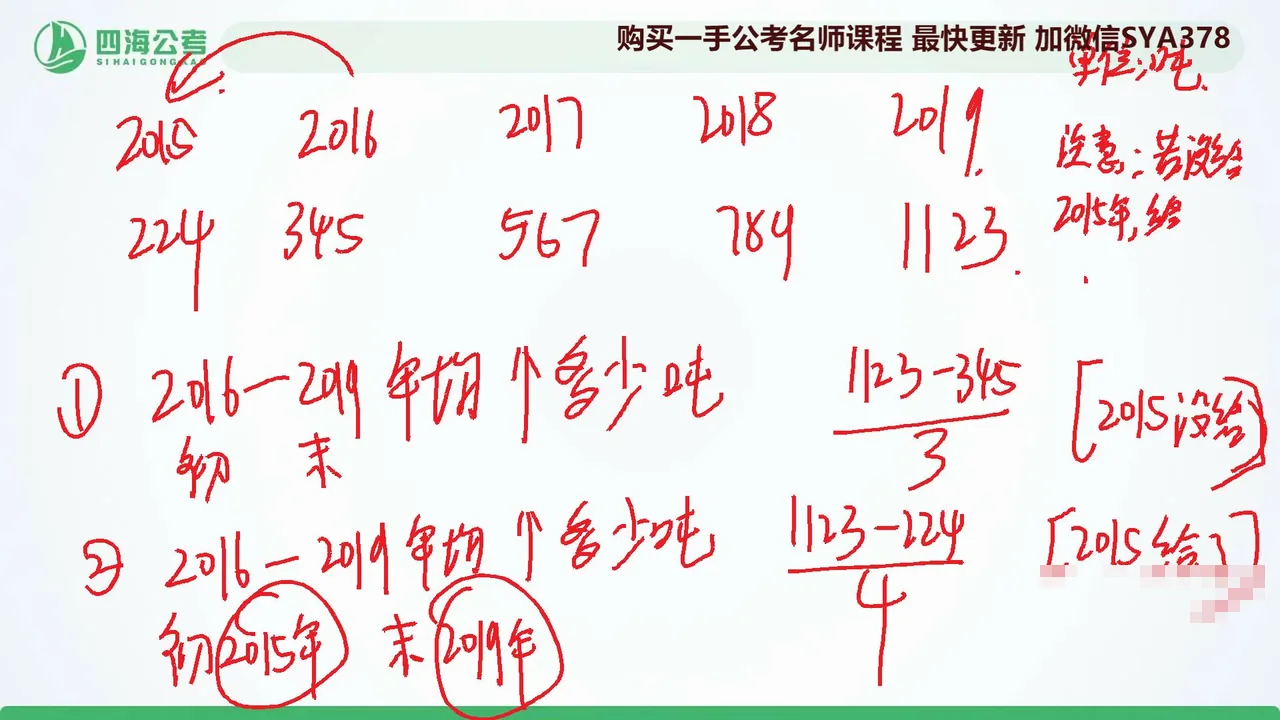 四海公考
SIHAIGONGKAO
购买一手公考名师课程 最快更新 加微信SYA378
单位:吨
2015 2016 2017 2018 2019
注意:若没给
2015年,给
224 345 567 789 1123
① 2016—2019年均↑多少吨 1123-345 / 3 [2015没给]
初 末
② 2016—2019年均↑多少吨 1123-224 / 4 [2015给了]
初2015年 末2019年